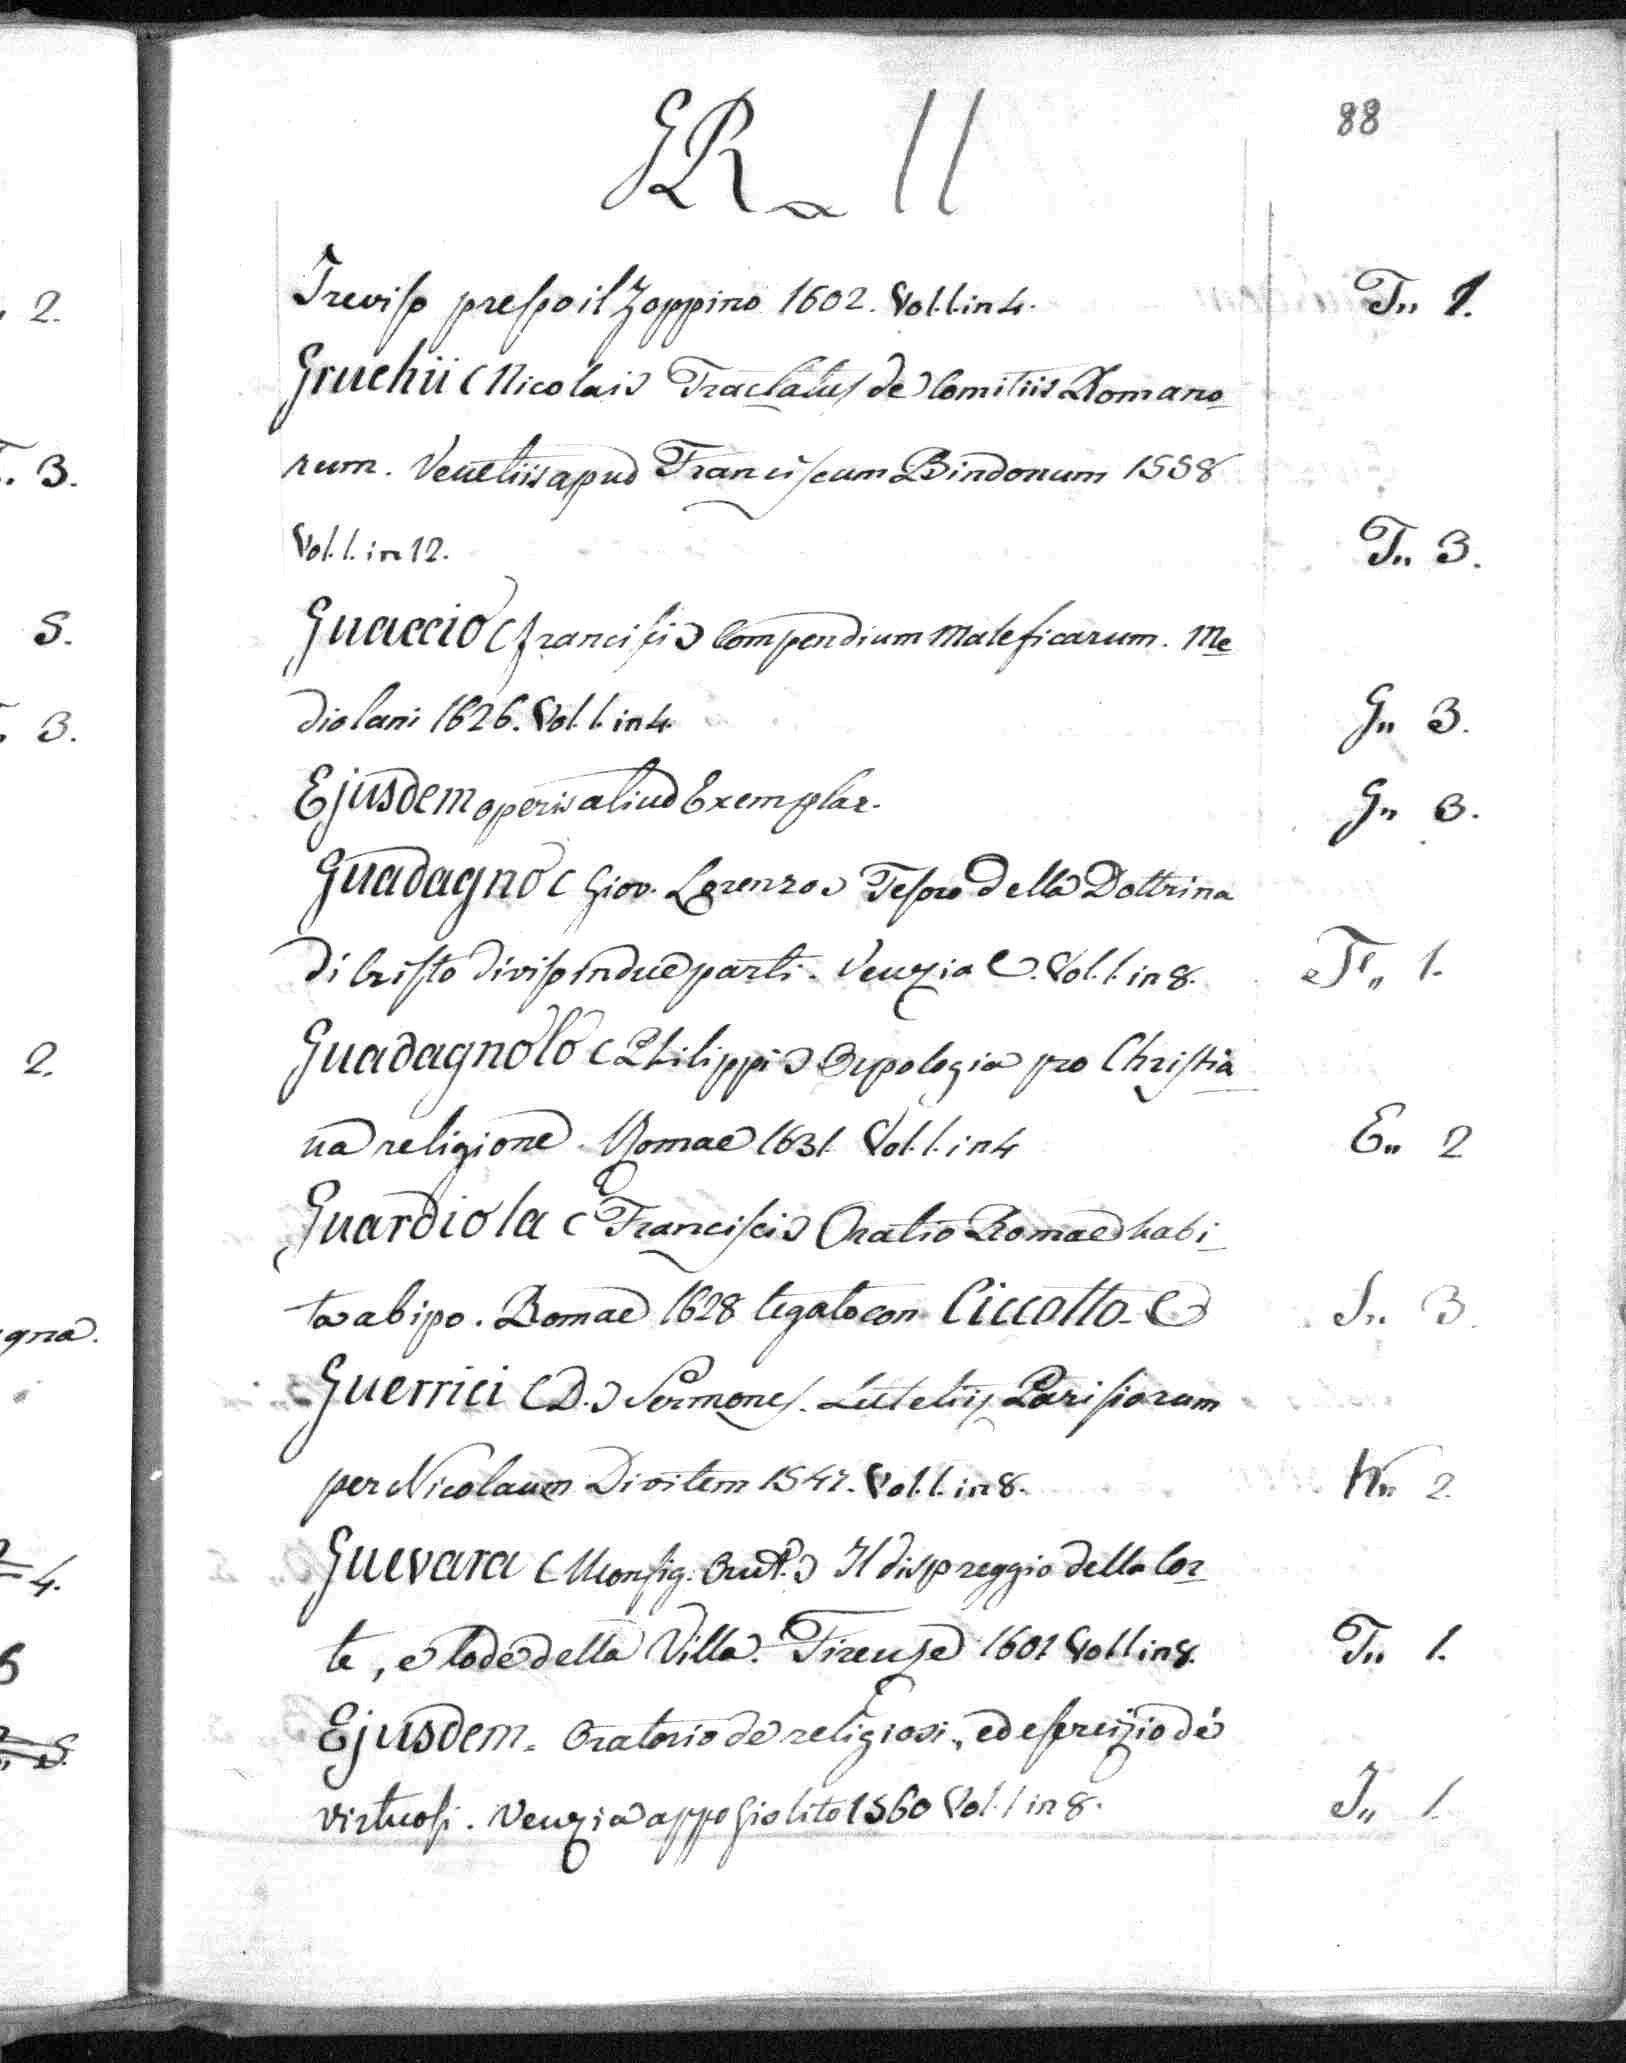 88
GR 11
Treviso presso il Zoppino 1602. Vol. 1. in 4. T,, 1.
Gruchii (Nicolai) Tractatus de Comitiis Romano-
rum. Venetiis apud Franciscum Bindonum 1558
Vol. 1. in 12. T,, 3.
Guaccio (Francisci) Compendium Maleficarum. Me-
diolani 1626. Vol. 1. in 4. G,, 3.
Ejusdem operis aliud Exemplar. G,, 3.
Guadagno (Giov. Lorenzo) Tesoro della Dottrina
di Cristo diviso in due parti. Venezia Vol. 1. in 8. 1.
Guadagnolo (Philippi) Apologia pro Christia-
na religione. Romae 1631. Vol. 1. in 4 E,, 2
Guardiola (Francisci) Oratio Romae habi-
ta ab ipo. Romae 1628 legato con Ciccotto. 3.
Guerrici (D.) Sermones. Lutetiis Parisiorum
per Nicolaum Divitem 1547. Vol. 1. in 8. K,, 2.
Guevara (Monsig. Ant.) Il dispreggio della Cor-
te, e lode della Villa. Firenze 1601 Vol. 1 in 8. T,, 1.
Ejusdem. Oratorio de religiosi, ed esercizio de'
virtuosi. Venezia appo Giolito 1560 Vol. 1 in 8. I,, 1.
2.
3.
S.
3.
2.
gna.
4.